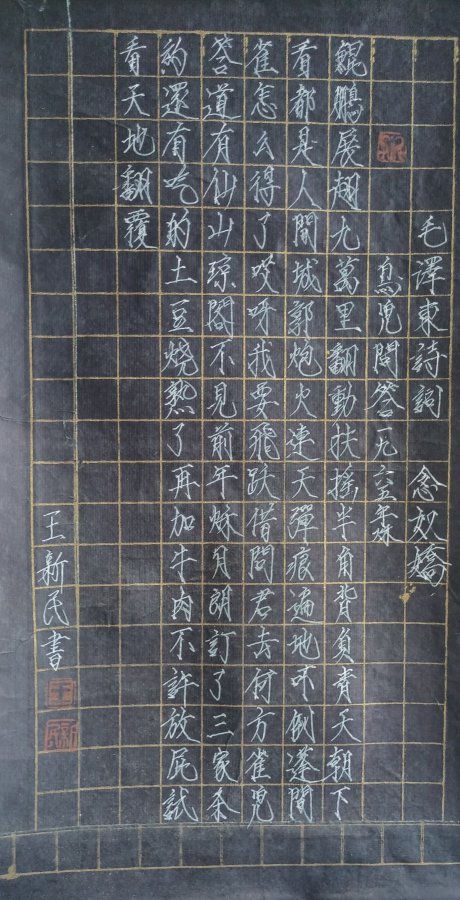 毛澤東詩詞 念奴嬌
鳥兒問答一九六五年秌
鯤鵬展翅九萬里翻動扶搖羊角背負青天朝下
看都是人間城郭炮火連天彈痕遍地吓倒蓬間
雀怎么得了哎呀我要飛跃借問君去何方雀兒
答道有仙山琼閣不見前年秌月朗訂了三家条
約還有吃的土豆燒熟了再加牛肉不許放屁試
看天地翻覆
王新民書